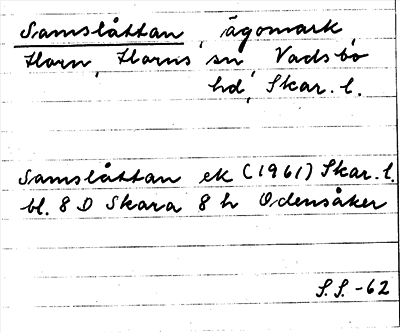 Samslåttan, ägomark,
Horn, Horns sn, Vadsbo
hd, Skar. l.
Samslåttan ek (1961) Skar. l.
bl. 8 D Skara 8 h Odensåker
S.S. -62